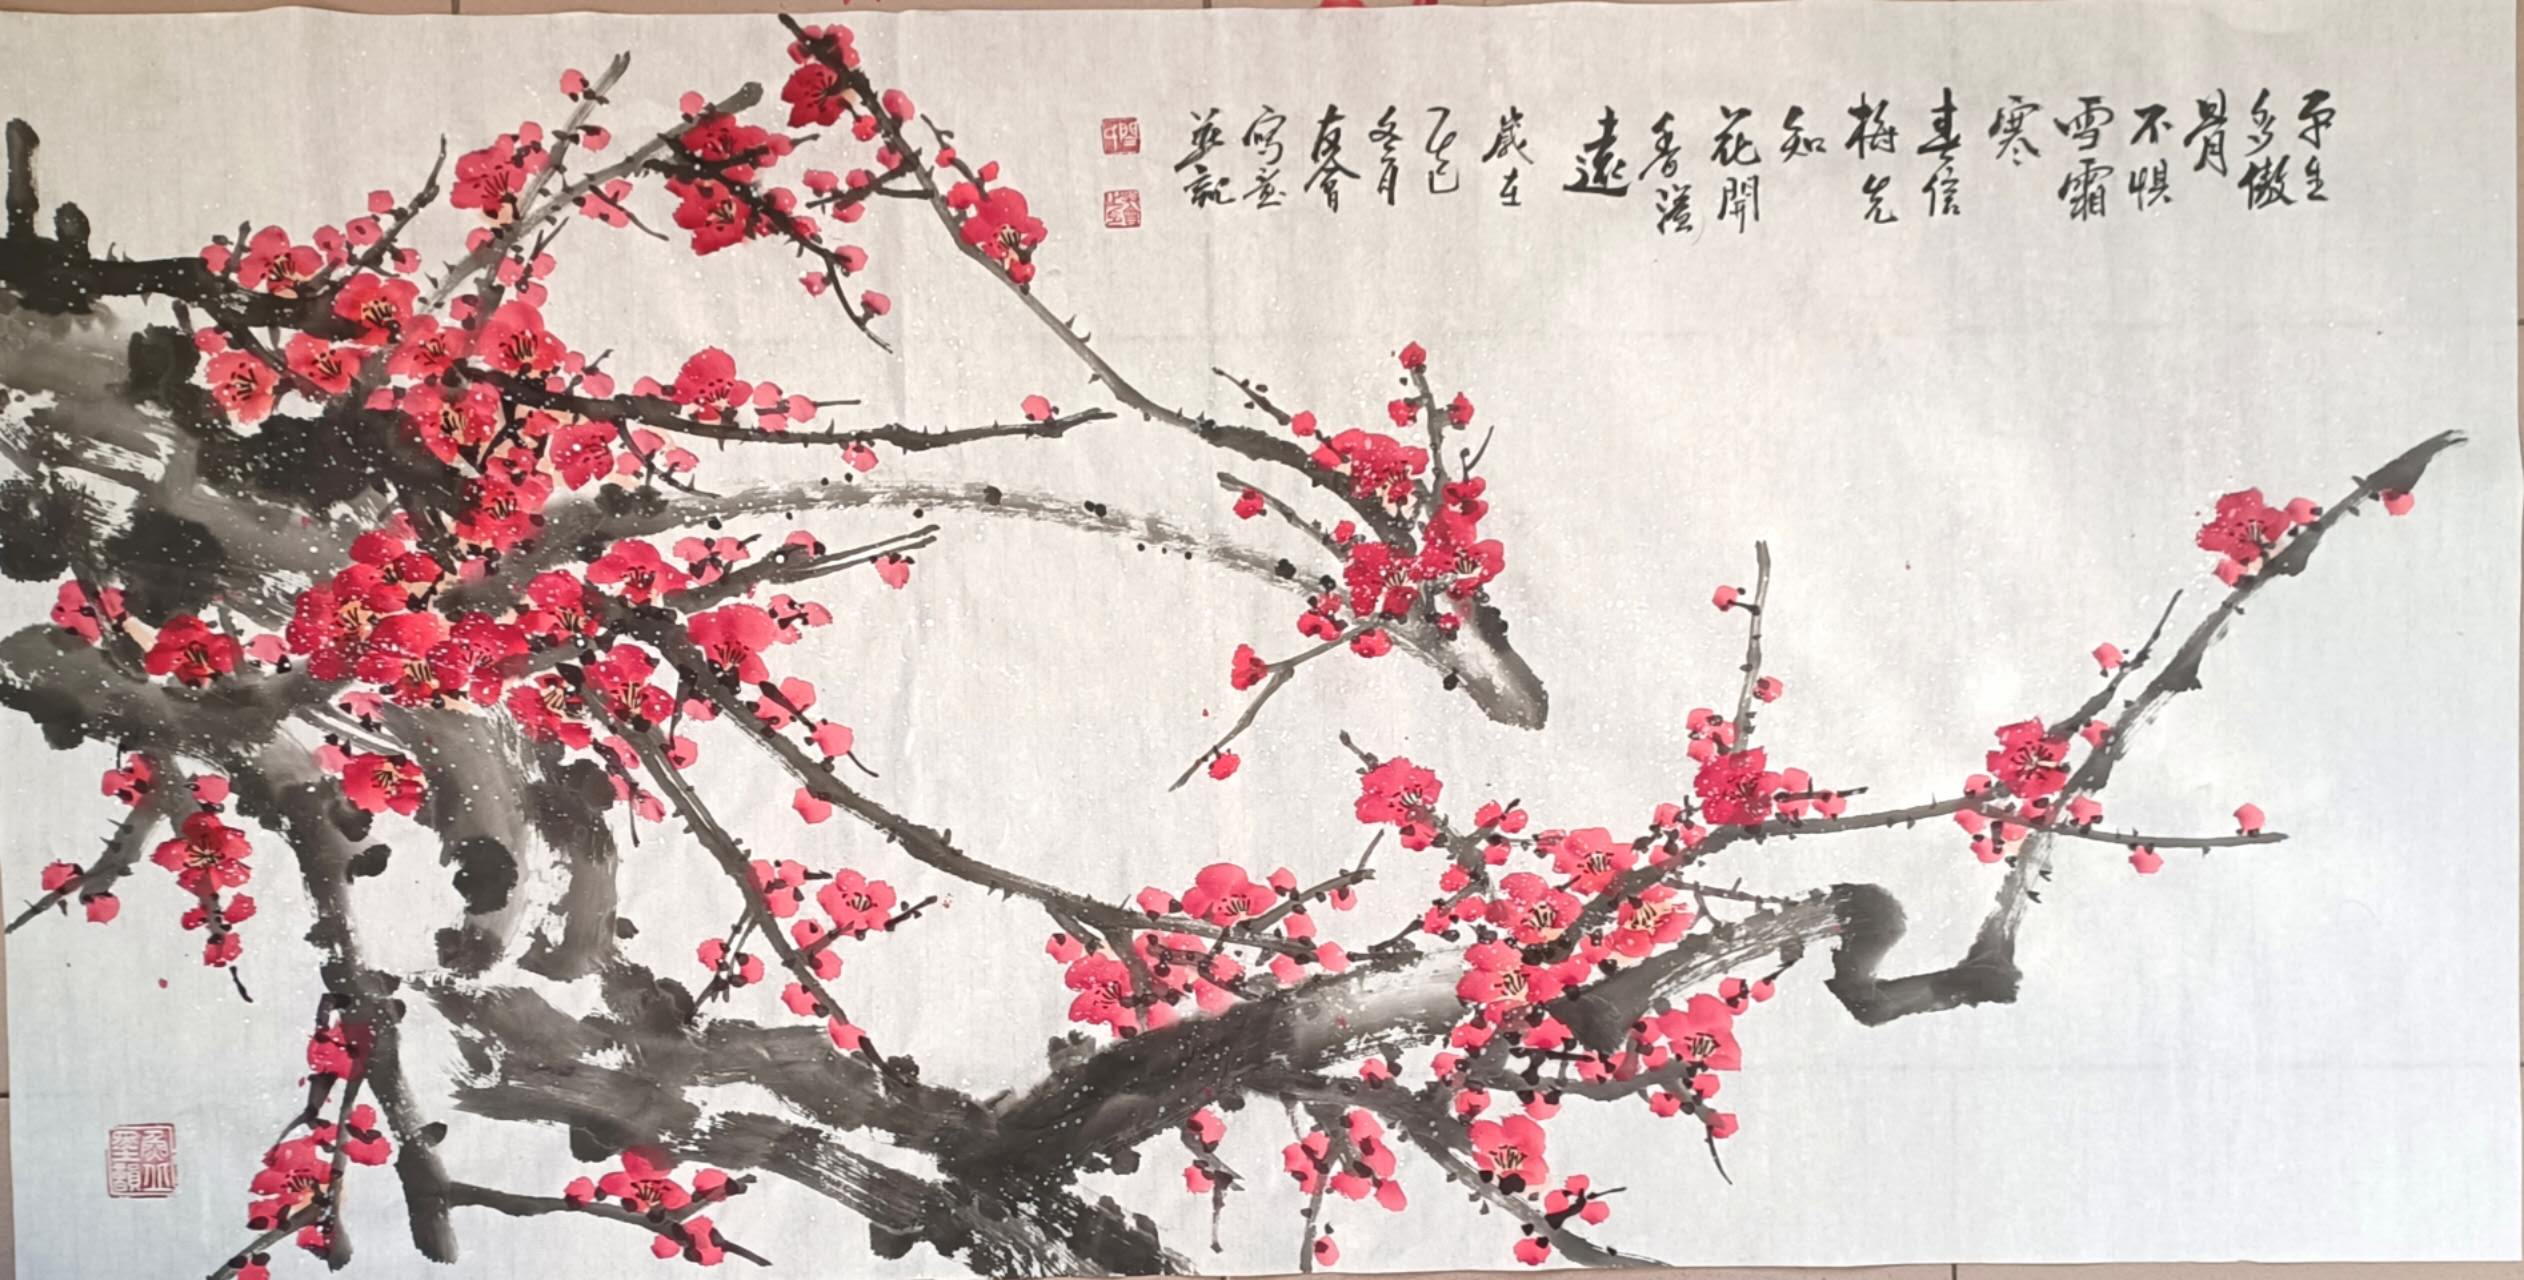 平生
多傲
骨
不惧
雪霜
寒
春信
梅先
知
花開
香溢
遠
歲在
乙巳
冬月
友會
寫意
記
墨韻